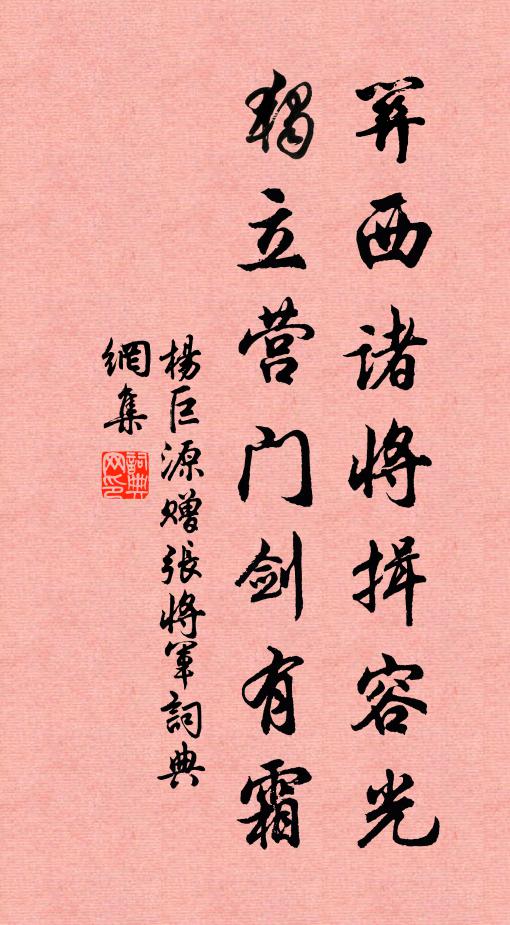 关西诸将揖容光
独立营门剑有霜
杨巨源赠张将军词典
網集
詞典网印